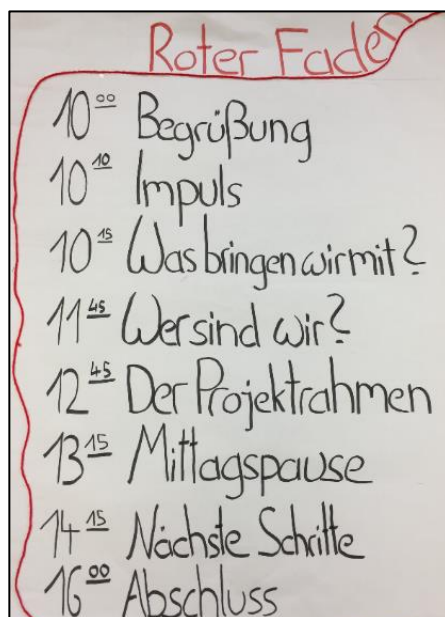 Roter Faden
10 00 Begrüßung
10 10 Impuls
10 15 Was bringen wir mit?
11 45 Wer sind wir?
12 45 Der Projektrahmen
13 15 Mittagspause
14 15 Nächste Schritte
16 00 Abschluss